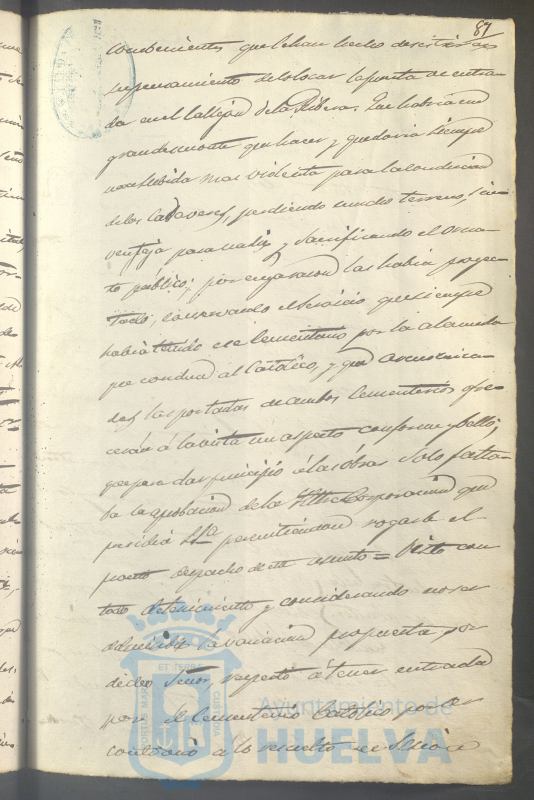 87
convenientes que le han hecho desistir
su pensamiento de colocar la puerta de entra-
da en el Callejon de la Ribera. Que habria un
grande monte que hacer, y quedaria siempre
una subida mas violenta para la conduccion
de los cadaveres, perdiendo mucho terreno, sin
ventaja para nadie, y sacrificando el orna-
to publico; por cuya razon las habia proyec-
tado, conservando el servicio que siempre
habia tenido ese Cementerio por la alameda
que conduce al Católico, y que
das las portadas de ambos Cementerios ofre-
cerán á la vista un aspecto conforme y bello;
que para dar principio á las obras solo falta-
ba la aprobacion de la Iltre Corporacion que
presidia permitiendose rogarle el
pronto despacho de este asunto = Visto con
todo detenimiento y considerando no ser
admisible la variacion propuesta por
dicho Señor, respecto á tener entrada
por el Cementerio Católico por ser
contrario á lo resuelto en
Ayuntamiento de
HUELVA